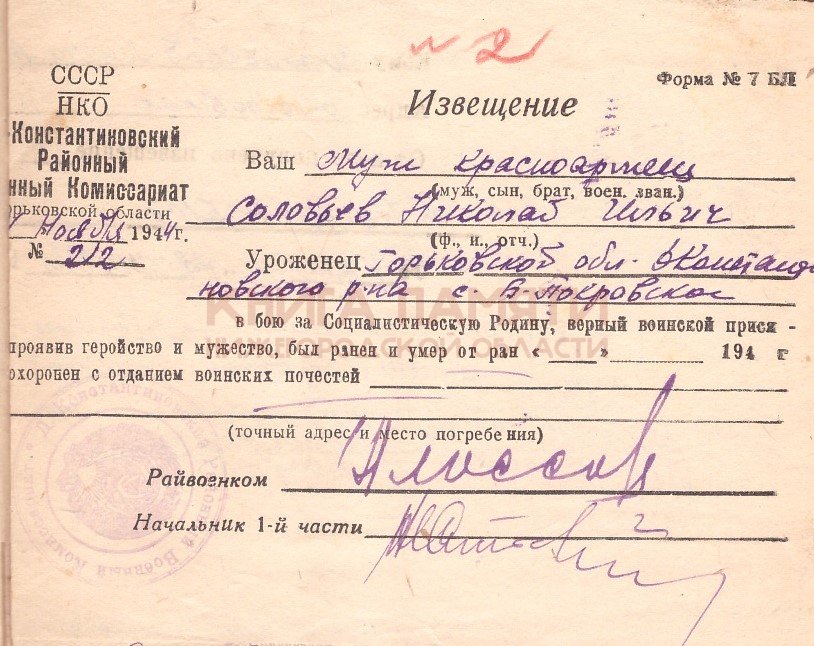 № 2
СССР
НКО
Константиновский
Районный
нный Комиссариат
орьковской области
Ноября 1944 г.
№ 212
Форма № 7 БЛ
Извещение
Ваш Муж красноармеец
(муж, сын, брат, воен. зван.)
Соловьев Николай Ильич
(ф., и., отч.)
Уроженец Горьковской обл. Константи
новского р-на с. Б-Покровское
КНИГА ПАМЯТИ
НИЖЕГОРОДСКОЙ ОБЛАСТИ
в бою за Социалистическую Родину, верный воинской прися -
проявив геройство и мужество, был ранен и умер от ран « » 194 г
охоронен с отданием воинских почестей
(точный адрес и место погребения)
Райвоенком
Начальник 1-й части